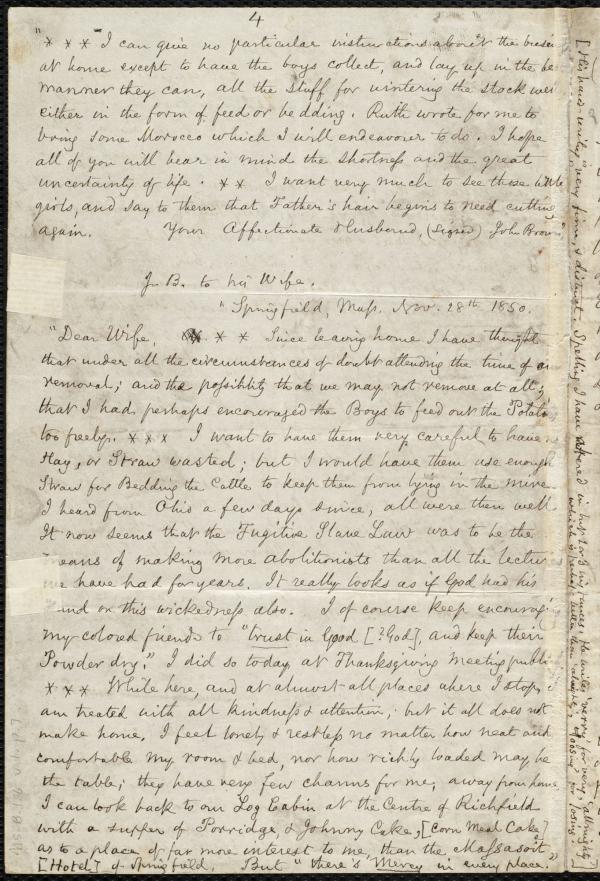 4
"* * * I can give no particular instructions about the
at home except to have the boys collect, and lay up in the
manner they can, all the stuff for wintering the stock
either in the form of feed or bedding. Ruth wrote for me to
bring some Morocco which I will endeavour to do. I hope
all of you will bear in mind the shortness and the great
uncertainty of life. * * I want very much to see those little
girls, and say to them that Father's hair begins to need cutting
again. Your Affectionate Husband, (signed) John Brown"
J. B. to his Wife.
"Springfield, Mass. Nov. 28th 1850.
"Dear Wife, * * * Since leaving home I have thought
that under all the circumstances of doubt attending the time of
removal; and the possibility that we may not remove at all;
that I had perhaps encouraged the Boys to feed out the Potatoes
too freely. * * * I want to have them very careful to have
Hay, or Straw wasted; but I would have them use enough
Straw for Bedding the Cattle to keep them from lying in the mire.
I heard from Ohio a few days since, all were then well.
It now seems that the Fugitive Slave Law was to be the
means of making more abolitionists than all the lectures
we have had for years. It really looks as if God had his
hand on this wickedness also. I of course keep encouraging
my colored friends to "trust in Good [?God], and keep their
Powder dry." I did so today, at Thanksgiving meeting
* * * While here, and at almost all places where I stop, I
am treated with all kindness & attention; but it all does not
make home. I feel lonely & restless no matter how neat and
comfortable my room & bed, nor how richly loaded may be
the table; they have very few charms for me, away from home.
I can look back to our Log Cabin at the Centre of Richfield
with a supper of Porridge, & Johnny Cake, [Corn Meal Cake]
as to a place of far more interest to me, than the Massasoit
[Hotel] of Springfield. But "there's Mercy in every place."
[His hand-writing very firm, & distinct. Spelling I have altered in but 2 or 3 instances. He writes 'verry' for very, 'allmighty'
which is perhaps better than almighty, 'loosing' for losing.]